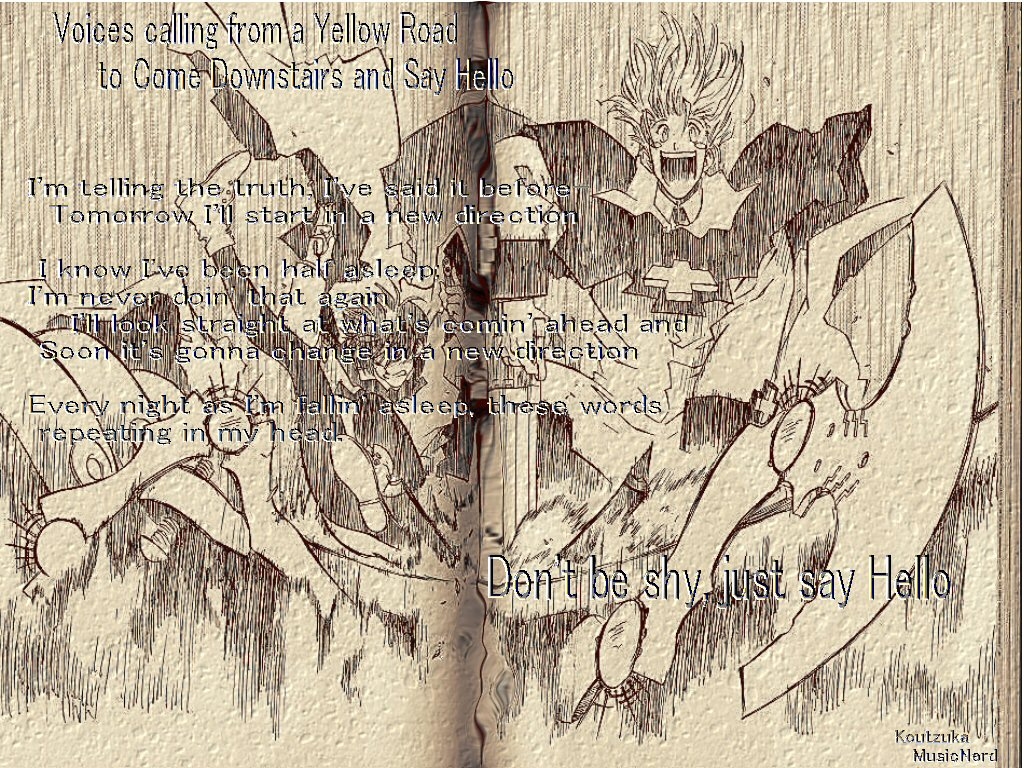 Voices calling from a Yellow Road
to Come Downstairs and Say Hello
I'm telling the truth, I've said it before
Tomorrow I'll start in a new direction
I know I've been half asleep,
I'm never doin' that again
I'll look straight at what's comin' ahead and
Soon it's gonna change in a new direction
Every night as I'm fallin' asleep, these words
repeating in my head.
Don't be shy, just say Hello
Koutzuka
MusicNerd